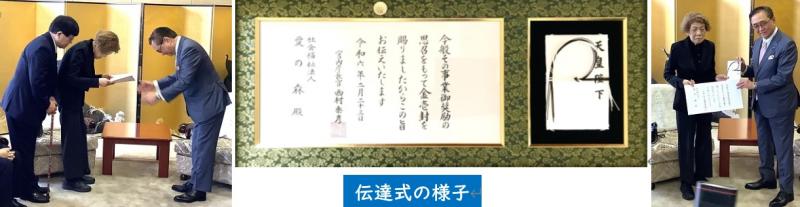 今般その事業御奨励の
思召をもって金壱封を
賜りましたからこの旨
お伝えいたします
令和六年二月二十三日
宮内庁長官 西村泰彦
社会福祉法人
愛の森 殿
天皇陛下
伝達式の様子